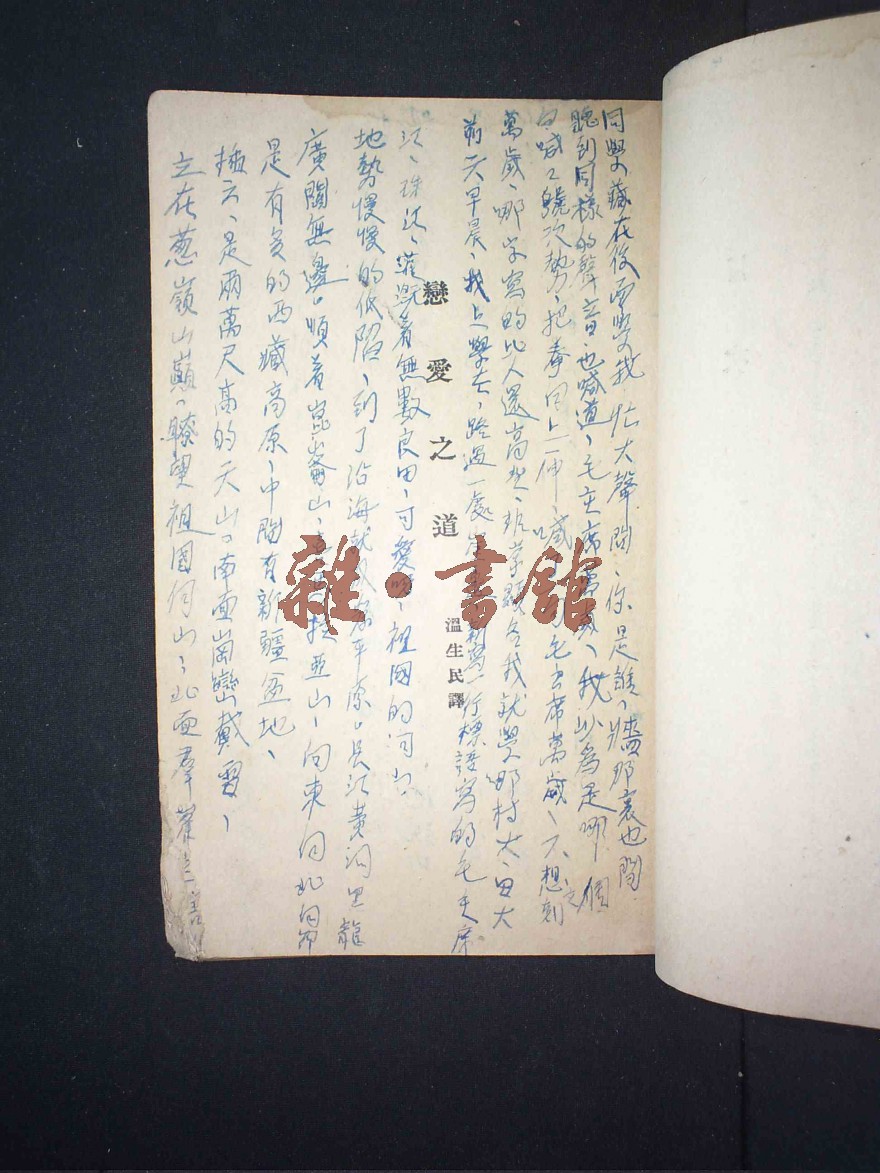 立在蔥嶺山巔、瞭望祖國河山、北面羣峯
是兩萬尺高的天山。南面崗巒戴雪、
是有多的西藏高原、中間有新疆盆地、
廣闊無邊。順着崑崙山、亞山、向東向北向南
地勢慢慢的低陷、到了沿海就成為平原。長江黃河黑龍
江、珠江、灌溉着無數良田、可愛呀、祖國的河山。
前天早晨、我上學去、路過一處 新寫一行標語寫的毛主席
萬歲、那字寫的比人還高些、我就學那樣大
喊 毛主席萬歲、不想刻
聽到同樣的聲音也喊道、毛主席萬歲、我以為是哪個
同學藏在後面學我、忙大聲問、你是誰、牆那裏也問
戀愛之道
溫生民譯
雜·書館